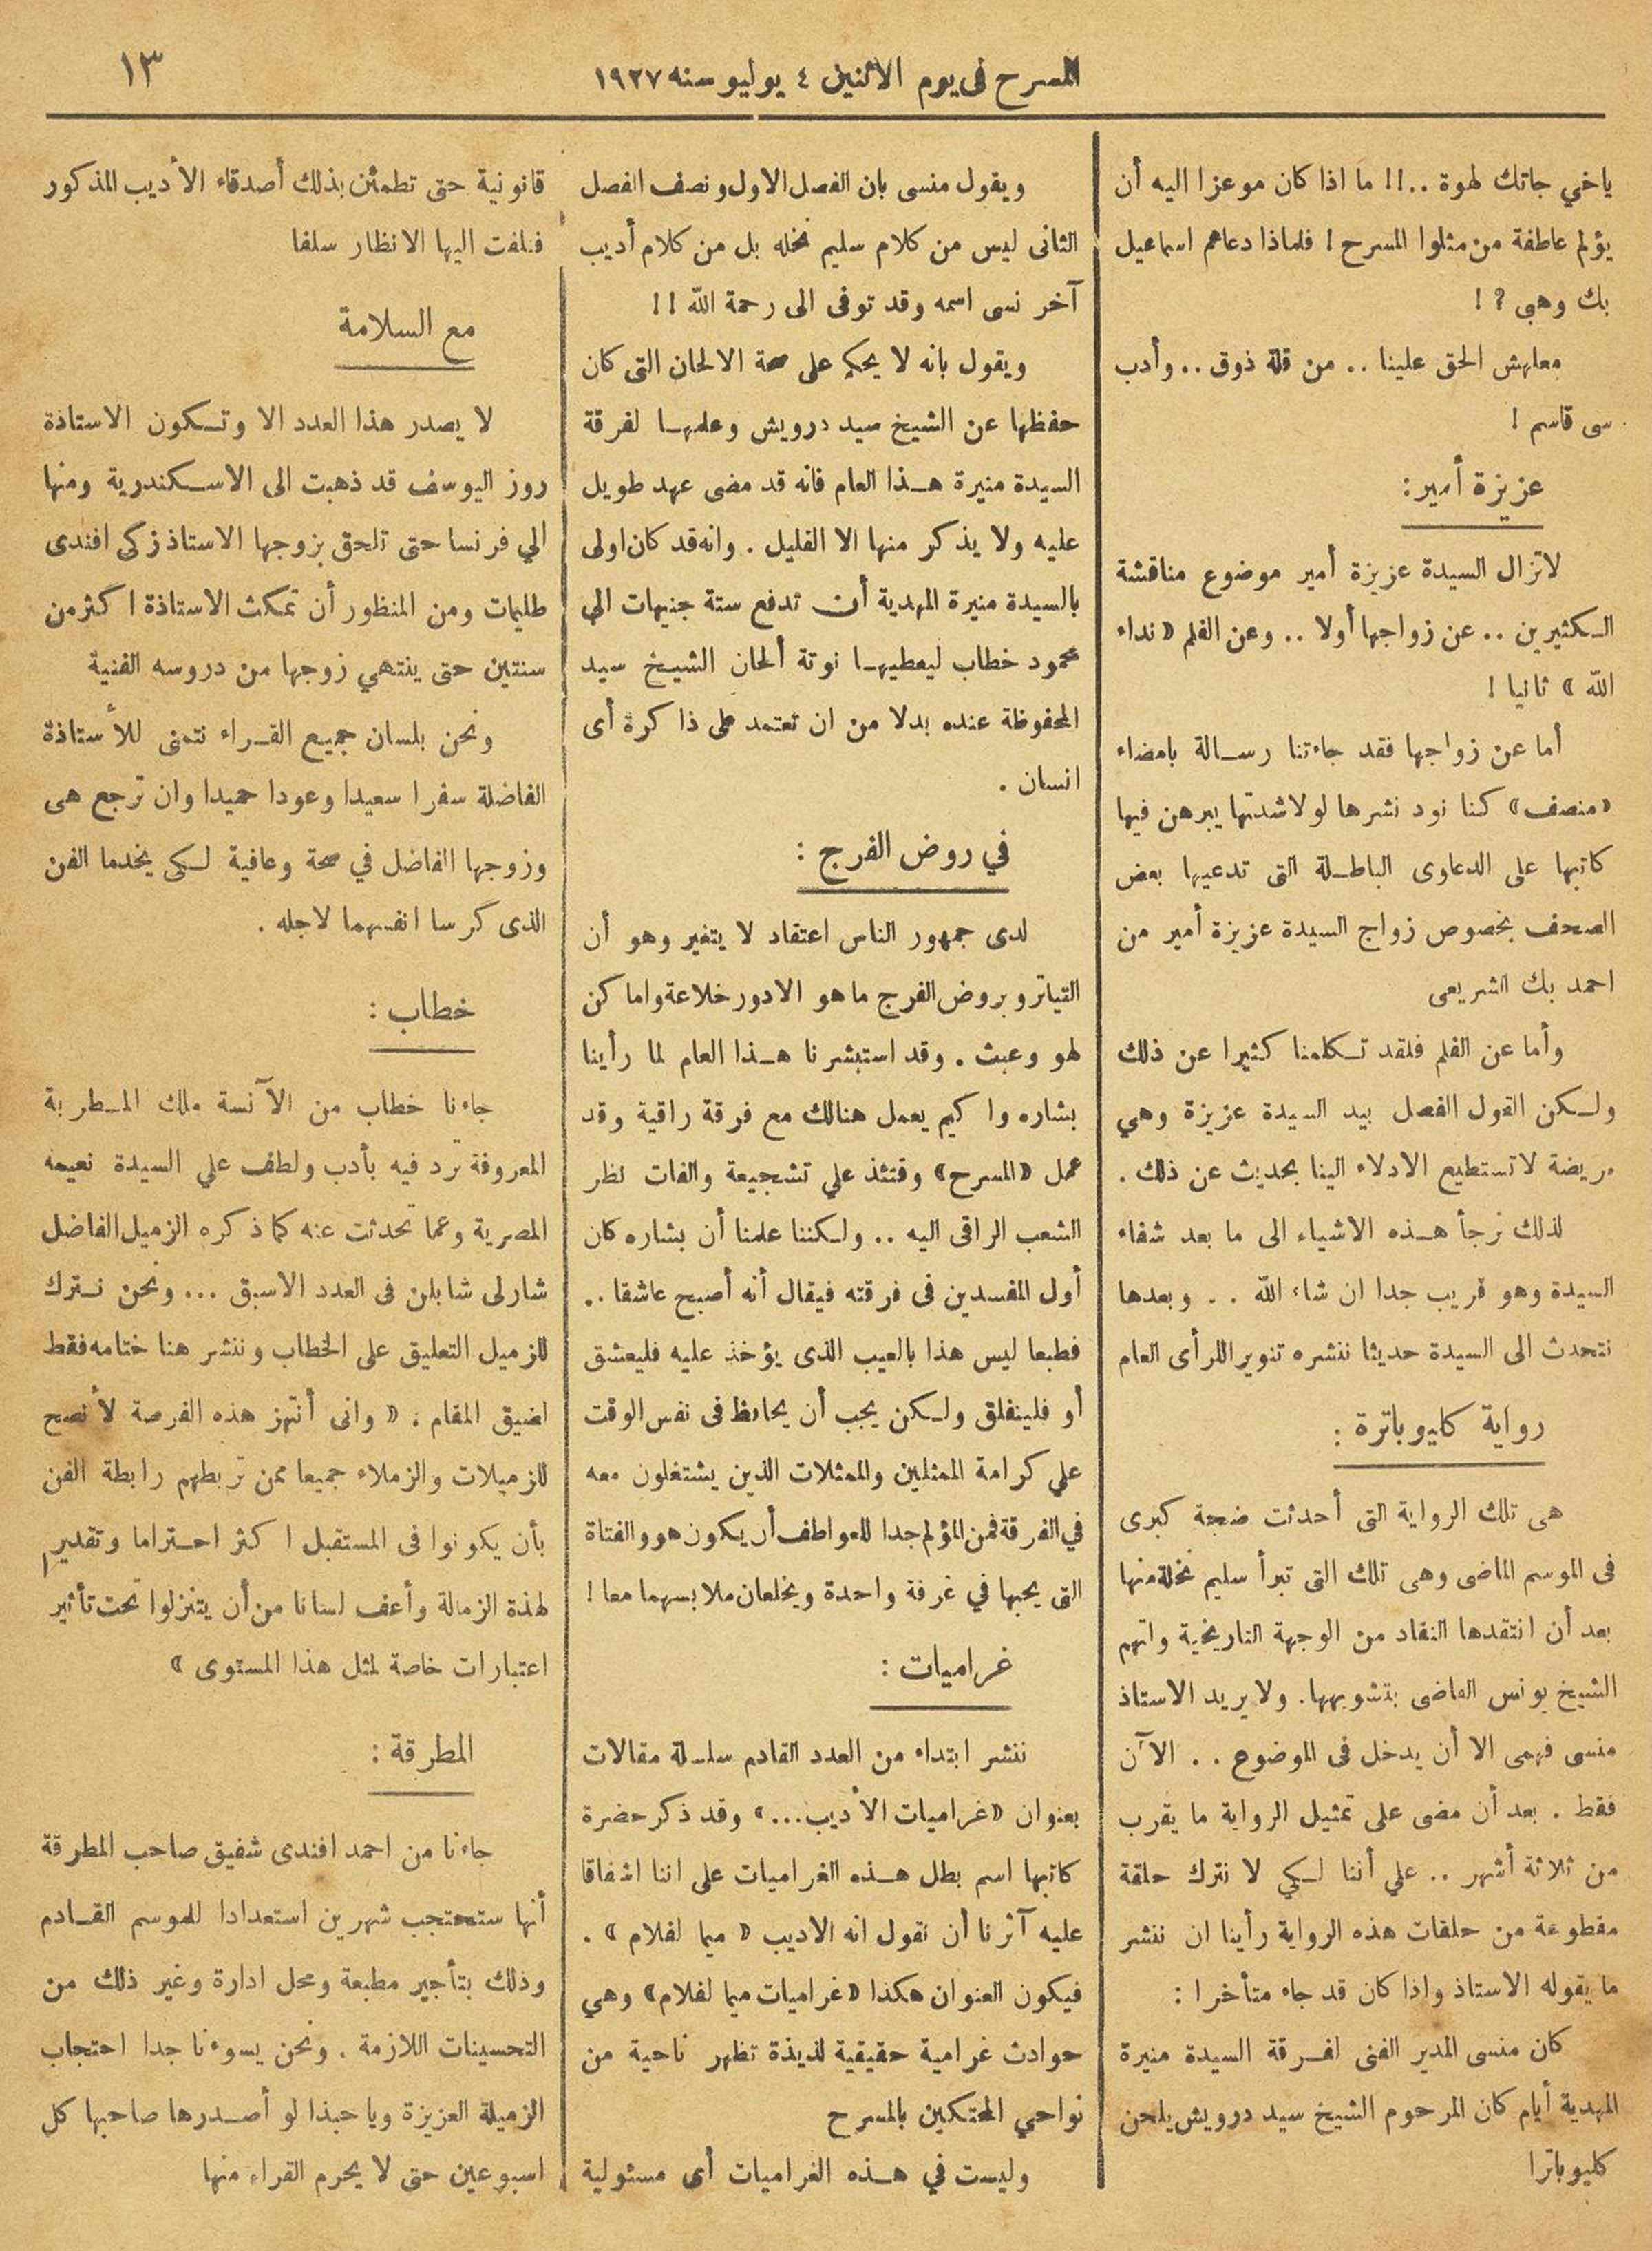 المسرح فى يوم الاثنين ٤ يوليو سنه ١٩٢٧
١٣
ياخي جاتك لهوة ..!! ما اذا كان موعزا اليه أن
يؤلم عاطفة من مثلوا المسرح ! فلماذا دعاهم اسماعيل
بك وهبى ? !
معلهش الحق علينا .. من قلة ذوق .. وأدب
سى قاسم !
عزيزة أمير:
لاتزال السيدة عزيزة أمير موضوع مناقشة
الـكثيرين .. عن زواجها أولا .. وعن الفلم « نداء
الله » ثانيا !
أما عن زواجها فقد جاءتنا رسـالة بامضاء
«منصف» كنا نود نشرها لولا شدتها يبرهن فيها
كاتبها على الدعاوى الباطـلة التى تدعيها بعض
الصحف بخصوص زواج السيدة عزيزة أمير من
احمد بك الشريعى
وأما عن الفلم فلقد تـكلمنا كثيرا عن ذلك
ولـكن القول الفصل بيد السيدة عزيزة وهي
مريضة لا تستطيع الادلاء الينا بحديث عن ذلك .
لذلك نرجأ هـذه الاشياء الى ما بعد شفاء
السيدة وهو قريب جدا ان شاء الله .. وبعدها
نتحدث الى السيدة حديثا ننشره تنويرا للرأى العام
رواية كليوباترة :
هى تلك الرواية التى أحدثت ضجة كبرى
فى الموسم الماضى وهى تلك التى تبرأ سليم نخلة منها
بعد أن انتقدها النقاد من الوجهة التاريخية واتهم
الشيخ يونس القاضى بتشويهها. ولا يريد الاستاذ
منسى فهمى الا أن يدخل فى الموضوع .. الآن
فقط . بعد أن مضى على تمثيل الرواية ما يقرب
من ثلاثة أشهر .. علي أننا لـكي لا نترك حلقة
مقطوعة من حلقات هذه الرواية رأينا ان ننشر
ما يقوله الاستاذ واذا كان قد جاء متأخرا :
كان منسى المدير الفنى لفـرقة السيدة منيرة
المهدية أيام كان المرحوم الشيخ سيد درويش يلحن
كليوباترا
ويقول منسى بان الفصل الاول ونصف الفصل
الثانى ليس من كلام سليم نخله بل من كلام أديب
آخر نسى اسمه وقد توفى الى رحمة الله !!
ويقول بانه لا يحكم على صحة الالحان التى كان
حفظها عن الشيخ سيد درويش وعلمهـا لفرقة
السيدة منيرة هـذا العام فانه قد مضى عهد طويل
عليه ولا يذكر منها الا القليل . وانه قد كان اولى
بالسيدة منيرة المهدية أن تدفع ستة جنيهات الي
محمود خطاب ليعطيهـا نوتة ألحان الشيـخ سيد
المحفوظة عنده بدلا من ان تعتمد على ذاكرة أى
انسان .
في روض الفرج :
لدى جمهور الناس اعتقاد لا يتغير وهو أن
التياترو بروض الفرج ما هو الادور خلاعة واماكن
لهو وعبث . وقد استبشرنا هـذا العام لما رأينا
بشاره واكيم يعمل هنالك مع فرقة راقية وقد
عمل «المسرح» وقتئذ علي تشجيعة والفات نظر
الشعب الراقى اليه .. ولـكننا علمنا أن بشاره كان
أول المفسدين فى فرقته فيقال أنه أصبح عاشقا ..
فطبعا ليس هذا بالعيب الذى يؤخذ عليه فليعشق
أو فلينفلق ولـكن يجب أن يحافظ فى نفس الوقت
علي كرامة الممثلين والممثلات الذين يشتغلون معه
في الفرقة فمن المؤلم جدا للعواطف أن يكون هو والفتاة
التى يحبها في غرفة واحدة ويخلعان ملابسهما معا !
غراميات :
ننشر ابتداء من العدد القادم سلسلة مقالات
بعنوان «غراميات الأديب...» وقد ذكر حضرة
كاتبها اسم بطل هـذه الغراميات على اننا اشفاقا
عليه آثرنا أن نقول انه الاديب « ميم لفلام » .
فيكون العنوان هكذا «غراميات ميم لفلام» وهي
حوادث غرامية حقيقية لذيذة تظهر ناحية من
نواحي المحتكين بالمسرح
وليست في هـذه الغراميات أى مسئولية
قانونية حتى تطمئن بذلك أصدقاء الأديب المذكور
فنلفت اليها الانظار سلفا
مع السلامة
لا يصدر هذا العدد الا وتـكون الاستاذة
روز اليوسف قد ذهبت الى الاسـكندرية ومنها
الي فرنسا حتى تلحق بزوجها الاستاذ زكى افندى
طليمات ومن المنظور أن تمكث الاستاذة اكثر من
سنتين حتى ينتهي زوجها من دروسه الفنية
ونحن بلسان جميع القـراء نتمنى للأستاذة
الفاضلة سفرا سعيدا وعودا حميدا وان ترجع هى
وزوجها الفاضل في صحة وعافية لـكى يخدما الفن
الذى كرسا انفسهما لاجله .
خطاب :
جاءنا خطاب من الآنسة ملك المـطربة
المعروفة ترد فيه بأدب ولطف علي السيدة نعيمه
المصرية وعما تحدثت عنه كما ذكره الزميل الفاضل
شارلى شابلن فى العدد الاسبق ... ونحن نـترك
للزميل التعليق على الخطاب وننشر هنا ختامه فقط
لضيق المقام : « وانى أنتهز هذه الفرصة لأنصح
للزميلات والزملاء جميعا ممن تربطهم رابطة الفن
بأن يكونوا فى المستقبل اكثر احـتراما وتقديرا
لهذة الزمالة وأعف لسانا من أن يتنزلوا تحت تأثير
اعتبارات خاصة لمثل هذا المستوى »
المطرقة :
جاءنا من احمد افندى شفيق صاحب المطرقة
أنها ستحتجب شهرين استعدادا للموسم القـادم
وذلك بتأجير مطبعة ومحل ادارة وغير ذلك من
التحسينات اللازمة . ونحن يسوءنا جدا احتجاب
الزميلة العزيزة ويا حبذا لو أصـدرها صاحبها كل
اسبوعين حتى لا يحرم القراء منها